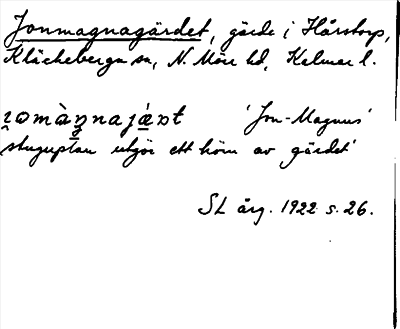 Jonmagnagärdet, gärde i Hårstorp,
Kläckeberga sn, N. Möre hd, Kalmar l.
'Jon-Magnus'
stuguplan utgör ett hörn av gärdet'
SL årg. 1922 s. 26.